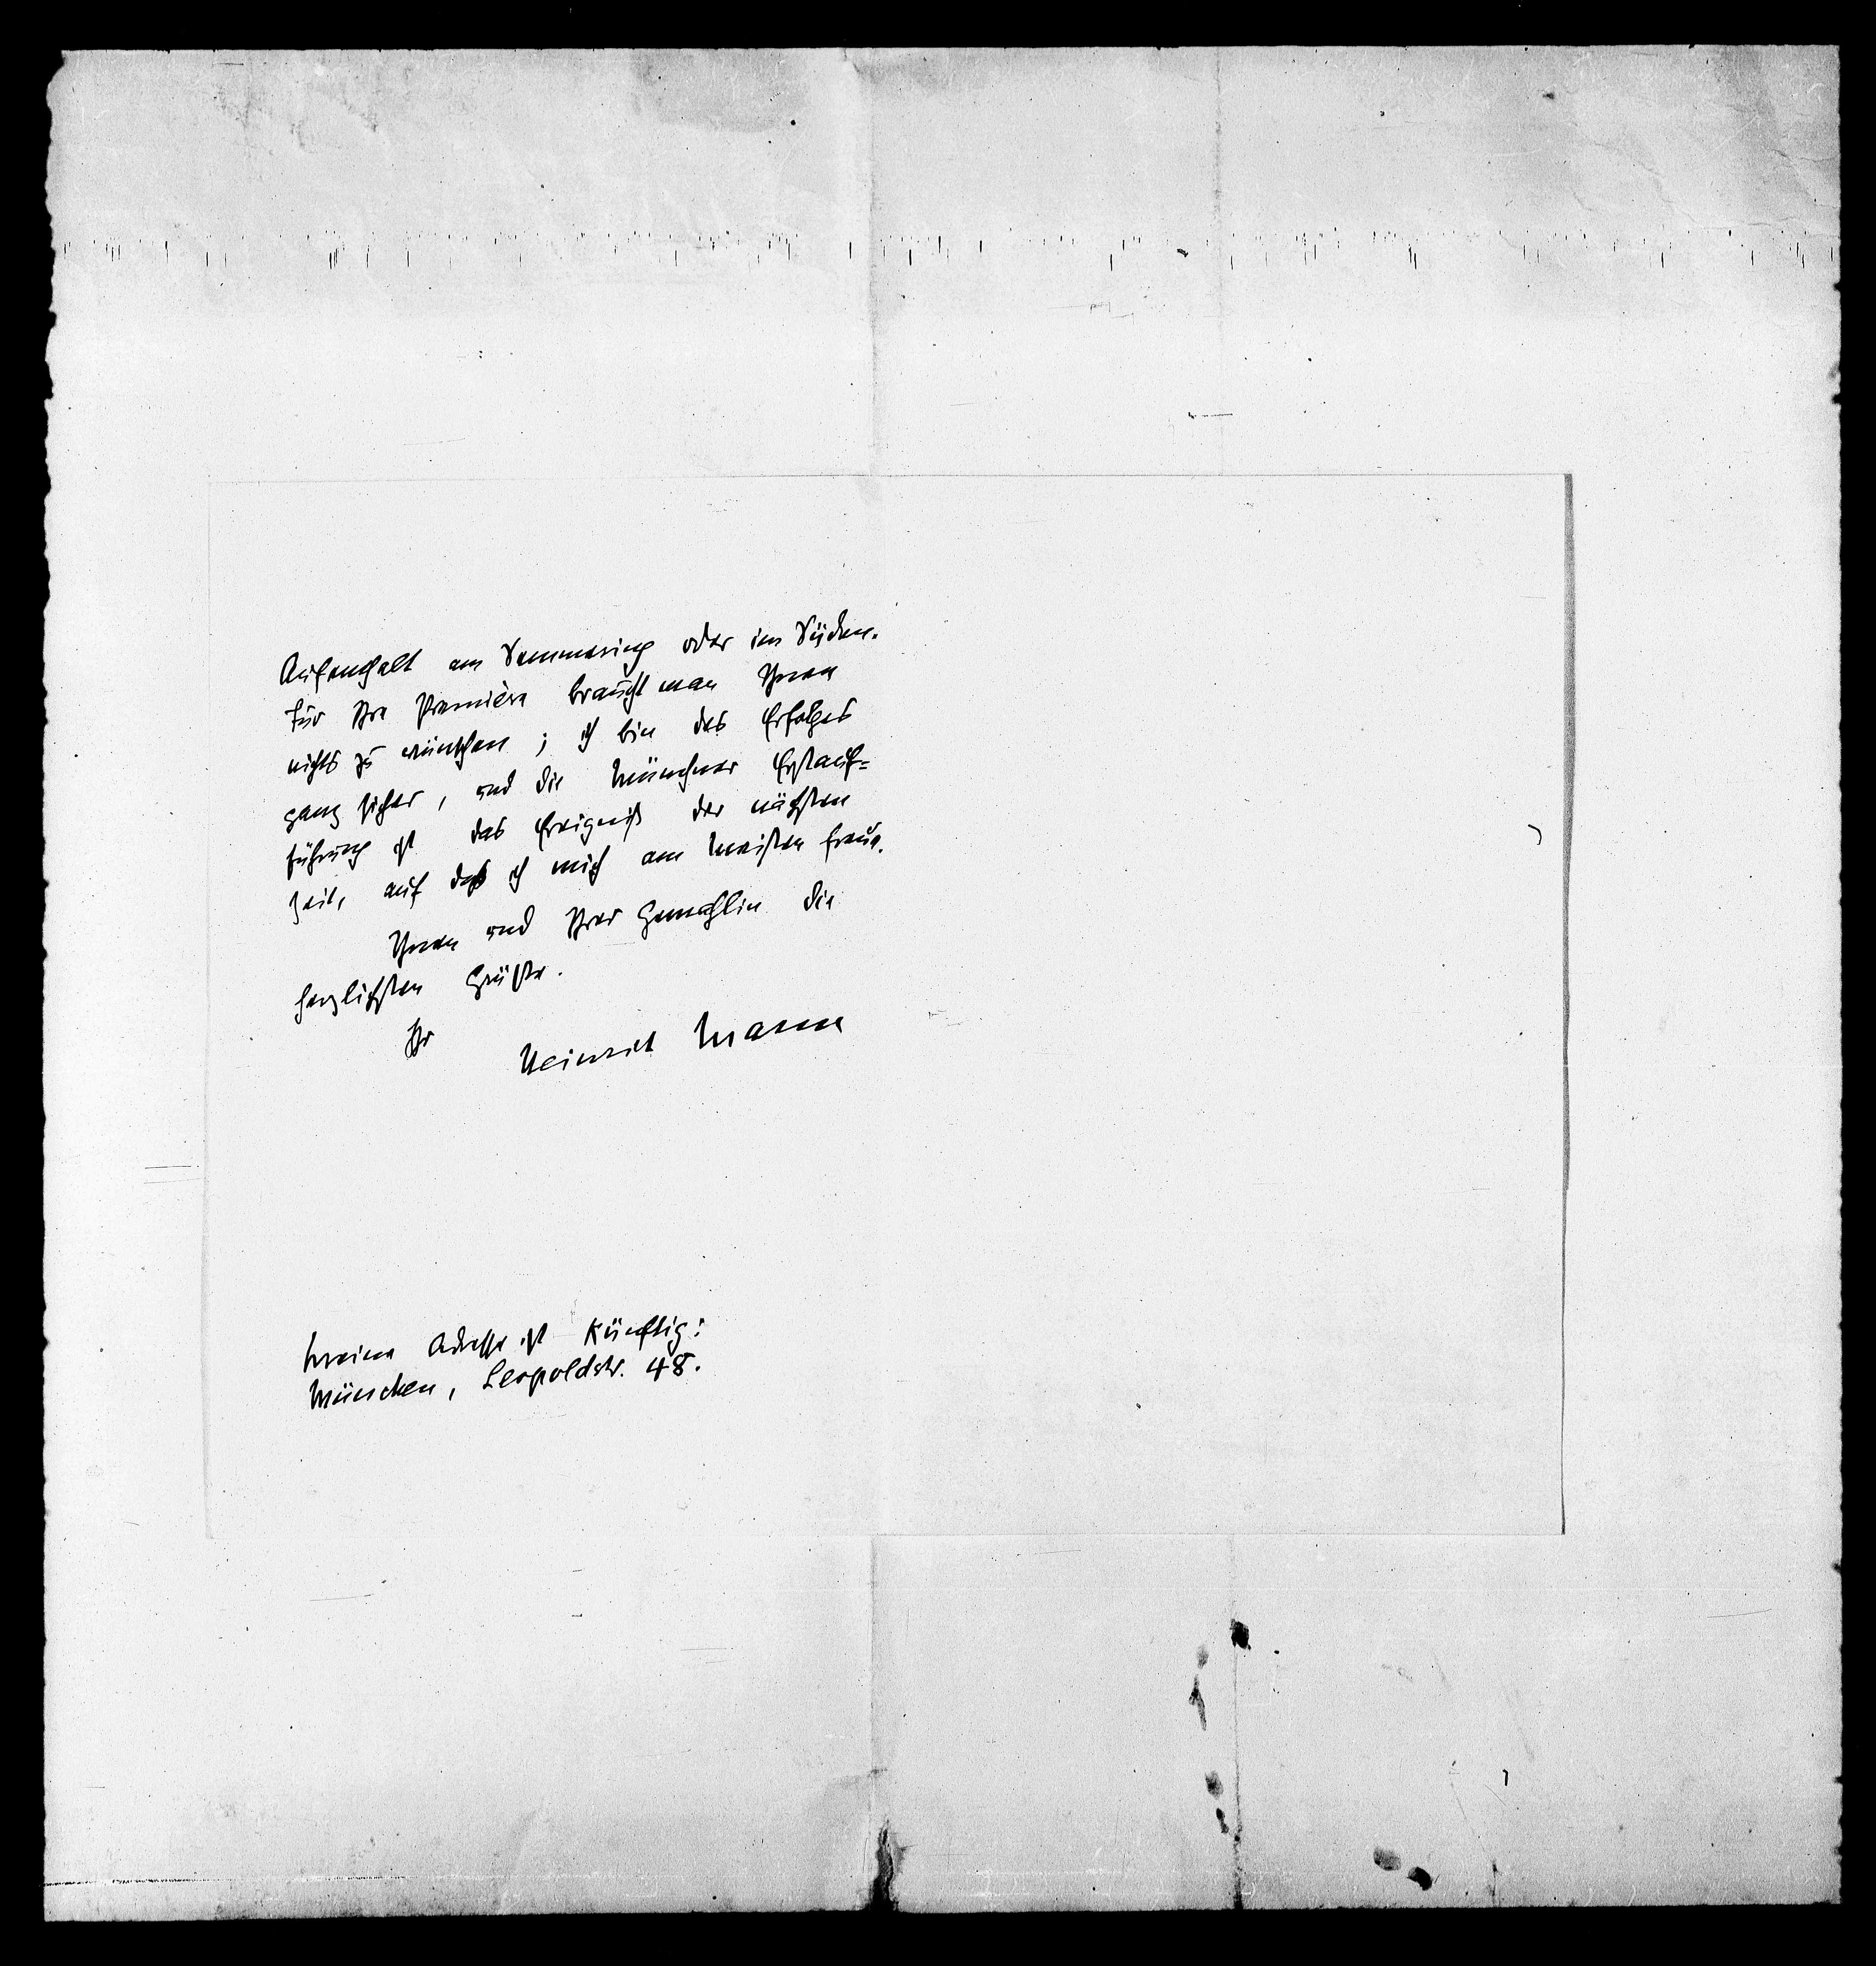 Aufenthalt am Semmering oder im Süden.
Für Ihre Première braucht man Ihnen
nichts zu wünschen; ich bin des Erfolges
ganz sicher, und die Münchner Erstauf=
führung ist das Ereigniß der nächsten
Zeit, auf das ich mich am Meisten freue.
Ihnen und Ihrer Gemahlin die
herzlichsten Grüße.
Ihr
Heinrich Mann
Meine Adresse ist künftig:
München, Leopoldstr. 48.